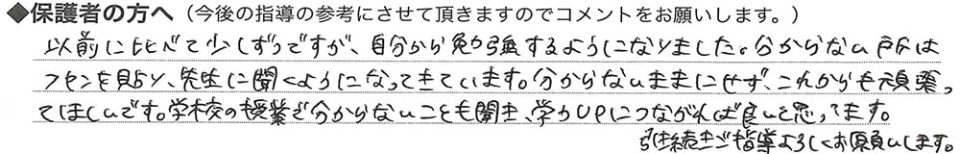 ◆保護者の方へ（今後の指導の参考にさせて頂きますのでコメントをお願いします。）
以前に比べて少しずつですが、自分から勉強するようになりました。分からない所は
フセンを貼り、先生に聞くようになってきています。分からないままにせず、これからも頑張っ
てほしいです。学校の授業で分からないことも聞き、学力UPにつながれば良いと思ってます。
引き続きご指導よろしくお願いします。